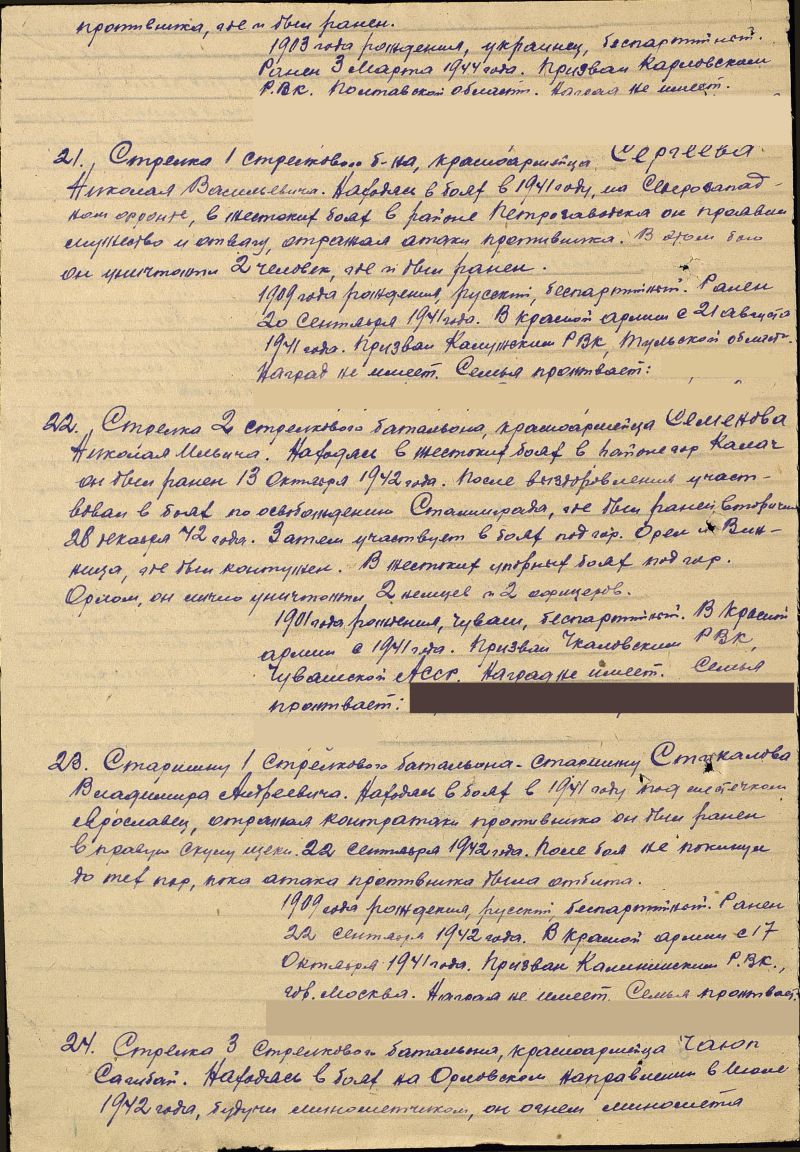 противника, где и был ранен.
1903 года рождения, украинец, беспартийный.
Ранен 3 Марта 1944 года. Призван Карловским
Р.В.К. Полтавской области. Наград не имеет.
21., Стрелка 1 стрелкового б-на, красноармейца Сергеева
Николая Васильевича. Находясь в боях в 1941 году, на Северозапад-
ном фронте, в жестоких боях в районе Петрозаводска он проявил
мужество и отвагу, отражая атаки противника. В этом бою
он уничтожил 2 человек, где и был ранен.
1909 года рождения, русский, беспартийный. Ранен
20 сентября 1941 года. В красной армии с 21 августа
1941 года. Призван Калужским РВК, Тульской област.
Наград не имеет. Семья проживает:
22., Стрелка 2 стрелкового батальона, красноармейца Семенова
Николая Ильича. Находясь в жестоких боях в районе гор Калач
он был ранен 13 Октября 1942 года. После выздоровления участ-
вовал в боях по освобождению Сталинграда, где был ранен вторично
28 декабря 42 года. Затем участвует в боях под гор. Орел и Вин-
ница, где был контужен. В жестоких упорных боях под гор.
Орлом, он лично уничтожил 2 немцев и 2 офицеров.
1901 года рождения, чуваш, беспартийный. В Красной
армии с 1941 года. Призван Чкаловским РВК
Чувашской АССР. Наград не имеет. Семья
проживает:
23. Старшину 1 стрелкового батальона - старшину Стукалова
Владимира Андреевича. Находясь в боях в 1941 году под местечком
Ярославец, отражая контратаки противника он был ранен
в правую скулу щеки 22 сентября 1942 года. После боя не покинул
до тех пор, пока атака противника была отбита.
1909 года рождения, русский, беспартийный. Ранен
22 сентября 1942 года. В Красной армии с 17
Октября 1941 года. Призван Калининским Р.В.К.,
гор. Москва. Наград не имеет. Семья проживает:
24. Стрелка 3 стрелкового батальона, красноармейца Чаюп
Сагибай. Находясь в боях на Орловском направлении в Июле
1942 года, будучи минометчиком, он огнем миномета